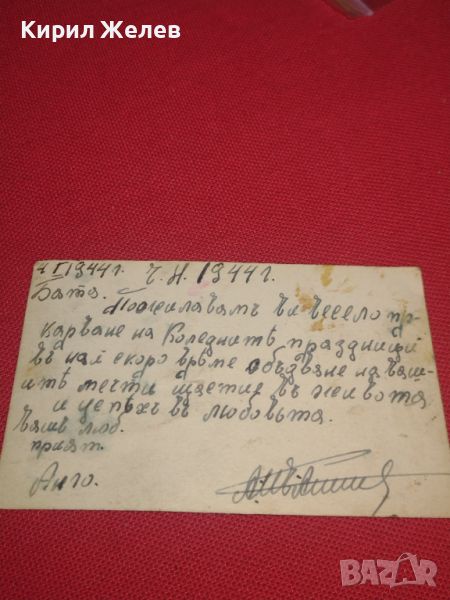 Кирил Желев
I 1944 г. Ч. Н. 1944 г.
Бата.
Пожелавамъ ви весело пр
карване на Коледнитѣ празници
въ най скоро врѣме сбѫдване на ваш
итѣ мечти щастие въ живота
и успѣхъ въ любовьта.
вашъ люб.
прият.
Анго.
BAZAR